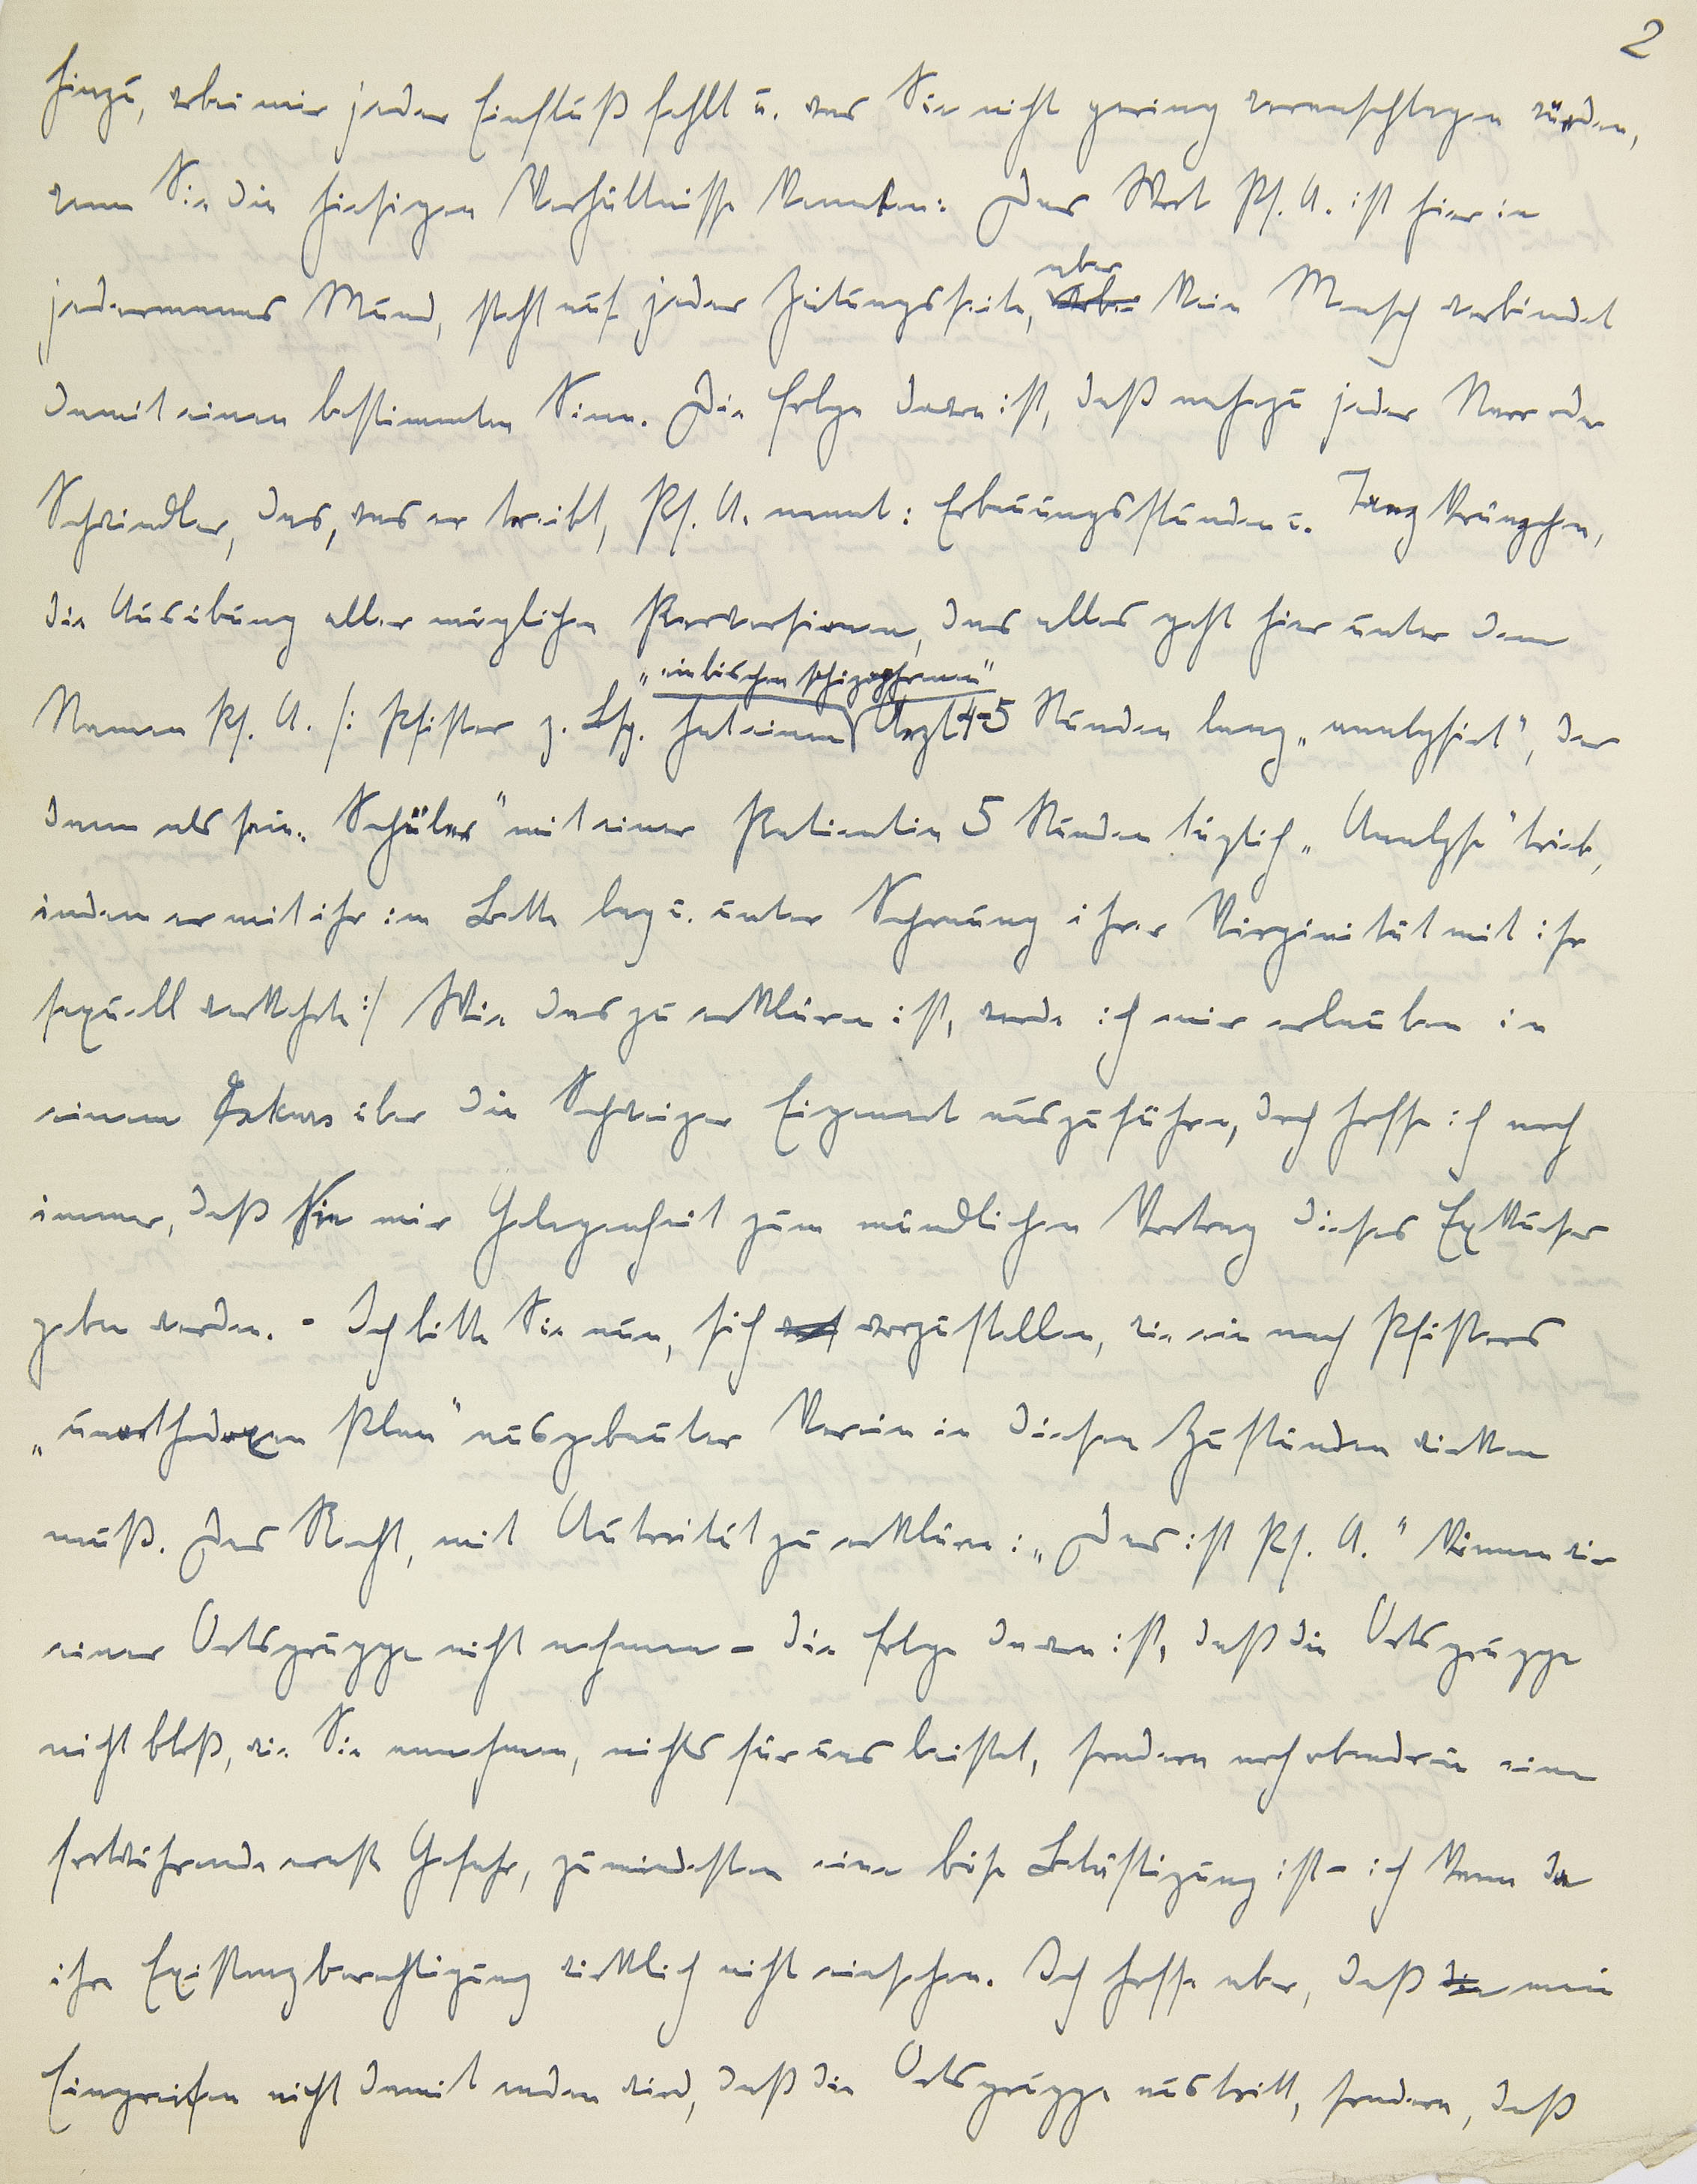 2
hinzu, wobei mir jeder Einfluß fehlt u. was Sie nicht gering veranschlagen würden,
wenn Sie die hiesigen Verhältnisse kennten. Das Wort Ps. A. ist hier in
jedermanns Mund, steht auf jeder Zeitungsseite, aber kein Mensch verbindet
damit einen bestimmten Sinn. Die Folge davon ist, daß nahezu jeder Narr oder
Schwindler, das, was er treibt, Ps. A. nennt: Erbauungsstunden u. Tanzkränzchen,
die Ausübung aller möglichen Perversionen, das alles geht hier unter dem
Namen Ps. A. /: Pfister z. Bsp. hat einen „weibischen schizophrenen" Arzt 4-5 Stunden lang „analysiert", der
dann als sein „Schüler" mit einer Patientin 5 Stunden täglich „Analyse" trieb,
indem er mit ihr im Bette lag u. unter Schonung ihrer Virginität mit ihr
sexuell verkehrte :/ Wie das zu erklären ist, werde ich mir erlauben in
einem Exkurs über die Schweizer Eigenart auszuführen, doch hoffe ich noch
immer, daß Sie mir Gelegenheit zum mündlichen Vortrag dieses Exkurses
geben werden. - Ich bitte Sie nun, sich vorzustellen, wie ein nach Pfisters
„unorthodoxen Plan" ausgebauter Verein in diesen Zuständen wirken
muß. Das Recht, mit Autorität zu erklären: „Das ist Ps. A." können wir
einer Ortsgruppe nicht nehmen - die Folge davon ist, daß die Ortsgruppe
nicht bloß, wie Sie annehmen, nichts für uns leistet, sondern noch obendrein eine
fortwährende ernste Gefahr, zumindesten eine böse Belästigung ist - ich kann da
ihre Existenzberechtigung wirklich nicht einsehen. Ich hoffe aber, daß mein
Eingreifen nicht damit enden wird, daß die Ortsgruppe austritt, sondern, daß